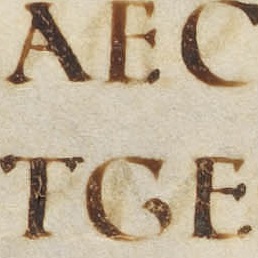 AEC
TGE